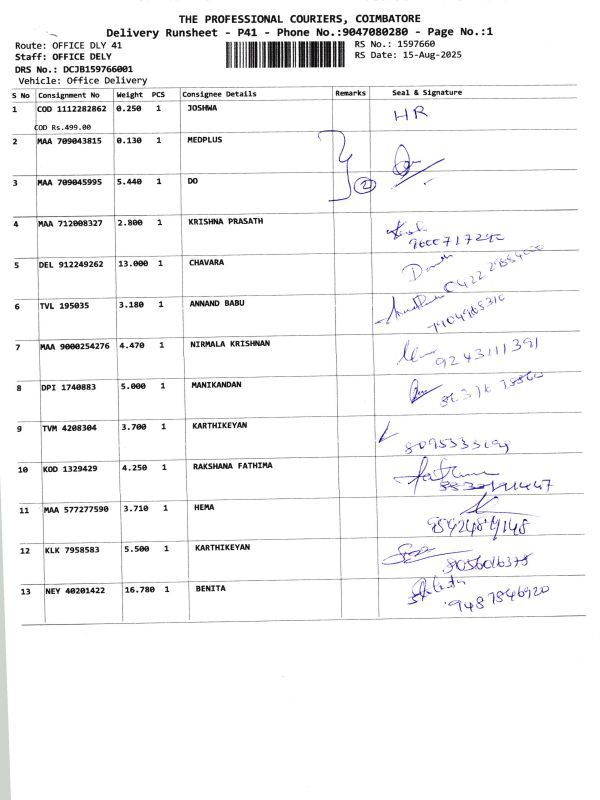 THE PROFESSIONAL COURIERS, COIMBATORE
Delivery Runsheet - P41 - Phone No.:9047080280 - Page No.:1
Route: OFFICE DLY 41 RS No.: 1597660
Staff: OFFICE DELY RS Date: 15-Aug-2025
DRS No.: DCJB159766001
Vehicle: Office Delivery
S No Consignment No Weight PCS Consignee Details Remarks Seal & Signature
1 COD 1112282862 0.250 1 JOSHWA HR
COD Rs.499.00
2 MAA 709043815 0.130 1 MEDPLUS
3 MAA 709045995 5.440 1 DO 2
4 MAA 712008327 2.800 1 KRISHNA PRASATH
5 DEL 912249262 13.000 1 CHAVARA
6 TVL 195035 3.180 1 ANNAND BABU
7 MAA 9000254276 4.470 1 NIRMALA KRISHNAN 9243111391
8 DPI 1740883 5.000 1 MANIKANDAN
9 TVM 4208304 3.700 1 KARTHIKEYAN
10 KOD 1329429 4.250 1 RAKSHANA FATHIMA
11 MAA 577277590 3.710 1 HEMA
12 KLK 7958583 5.500 1 KARTHIKEYAN 8056016375
13 NEY 40201422 16.780 1 BENITA 9487846920